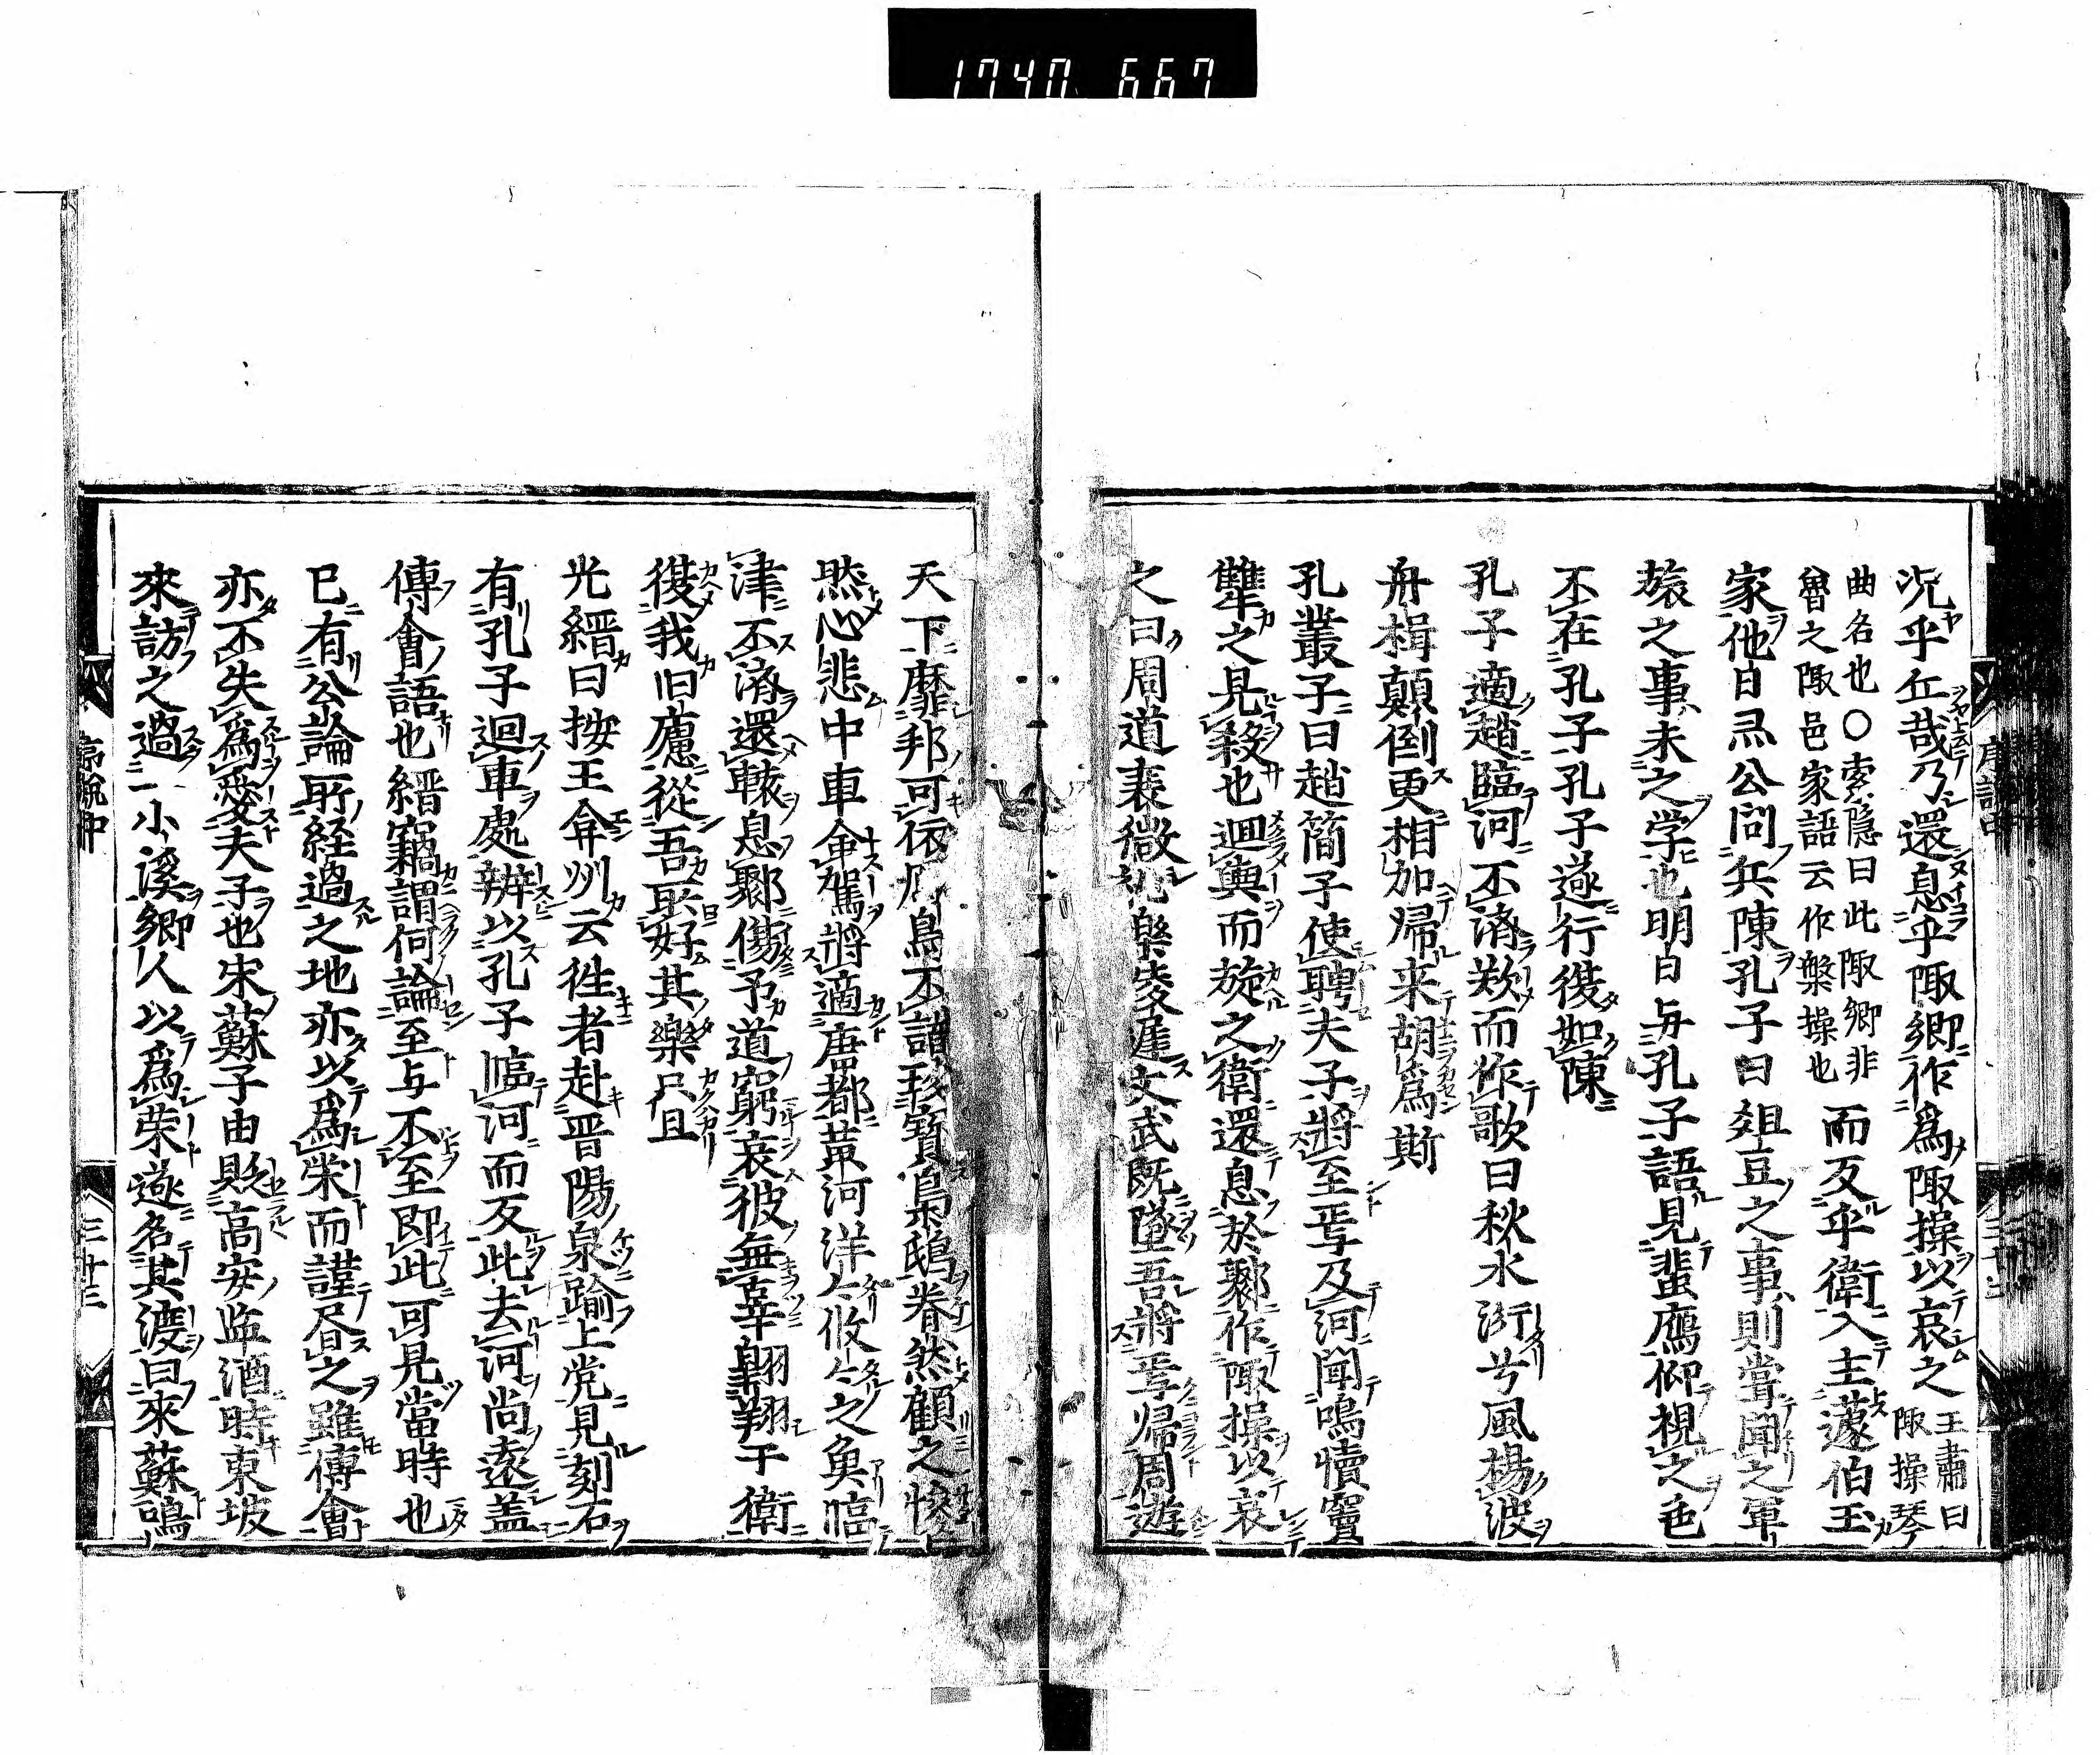 1740 667
況乎丘哉乃還息乎陬鄉作爲陬操以哀之 王肅曰陬操琴
曲名也○索隱曰此陬鄉非魯之陬邑家語云作槃操也 而反乎衛入主蘧伯玉
家他日灵公問兵陳孔子曰俎豆之事則甞聞之軍
旅之事未之学也明日与孔子語見蜚鴈仰視之色
不在孔子孔子遂行復如陳
孔子適趙臨河不濟歎而作歌曰秋水衍兮風揚波
舟楫顛倒更相加帰来胡爲斯
孔叢子曰趙簡子使聘夫子將至焉及河聞鳴犢竇
犨之見殺也迴輿而旋之衛還息於鄹作陬操以哀
之曰周道衰微礼樂陵遲文武既墜吾將焉帰周遊
天下靡邦可依鳥不識珍寶梟鴟眷然顧之慘
然心悲巾車命駕將適唐都黄河洋々攸々之魚臨
津不濟還轅息鄹傷予道窮哀彼無辜翺翔于衛
復我旧廬從吾所好其樂只且
光縉曰按王弇州云徃者赴晋陽泉踰上党見刻石
有孔子迴車處辨以孔子臨河而反此去河尚遠盖
傅會語也縉竊謂何論至与不至即此可見當時也
已有公論所経過之地亦以爲栄而謹尽之雖傅會
亦不失爲愛夫子也宋蘇子由貶高安監酒時東坡
來訪之過一小溪郷人以爲栄遂名其渡曰來蘇嗚
三廿三